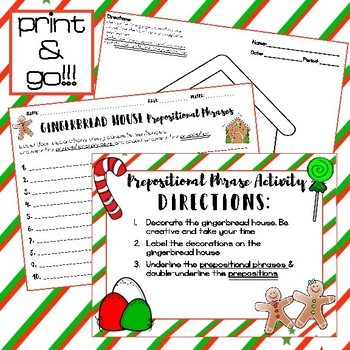 print
&
go!!!
Directions:
Name:
Date: Period:
NAME: DATE: PERIOD:
GINGERBREAD HOUSE Prepositional Phrases
1.
2.
3.
4.
5.
6.
7.
8.
9.
10.
Prepositional Phrase Activity
DIRECTIONS:
1. Decorate the gingerbread house. Be
creative and take your time
2. Label the decorations on the
gingerbread house
3. Underline the prepositional phrases &
double-underline the prepositions